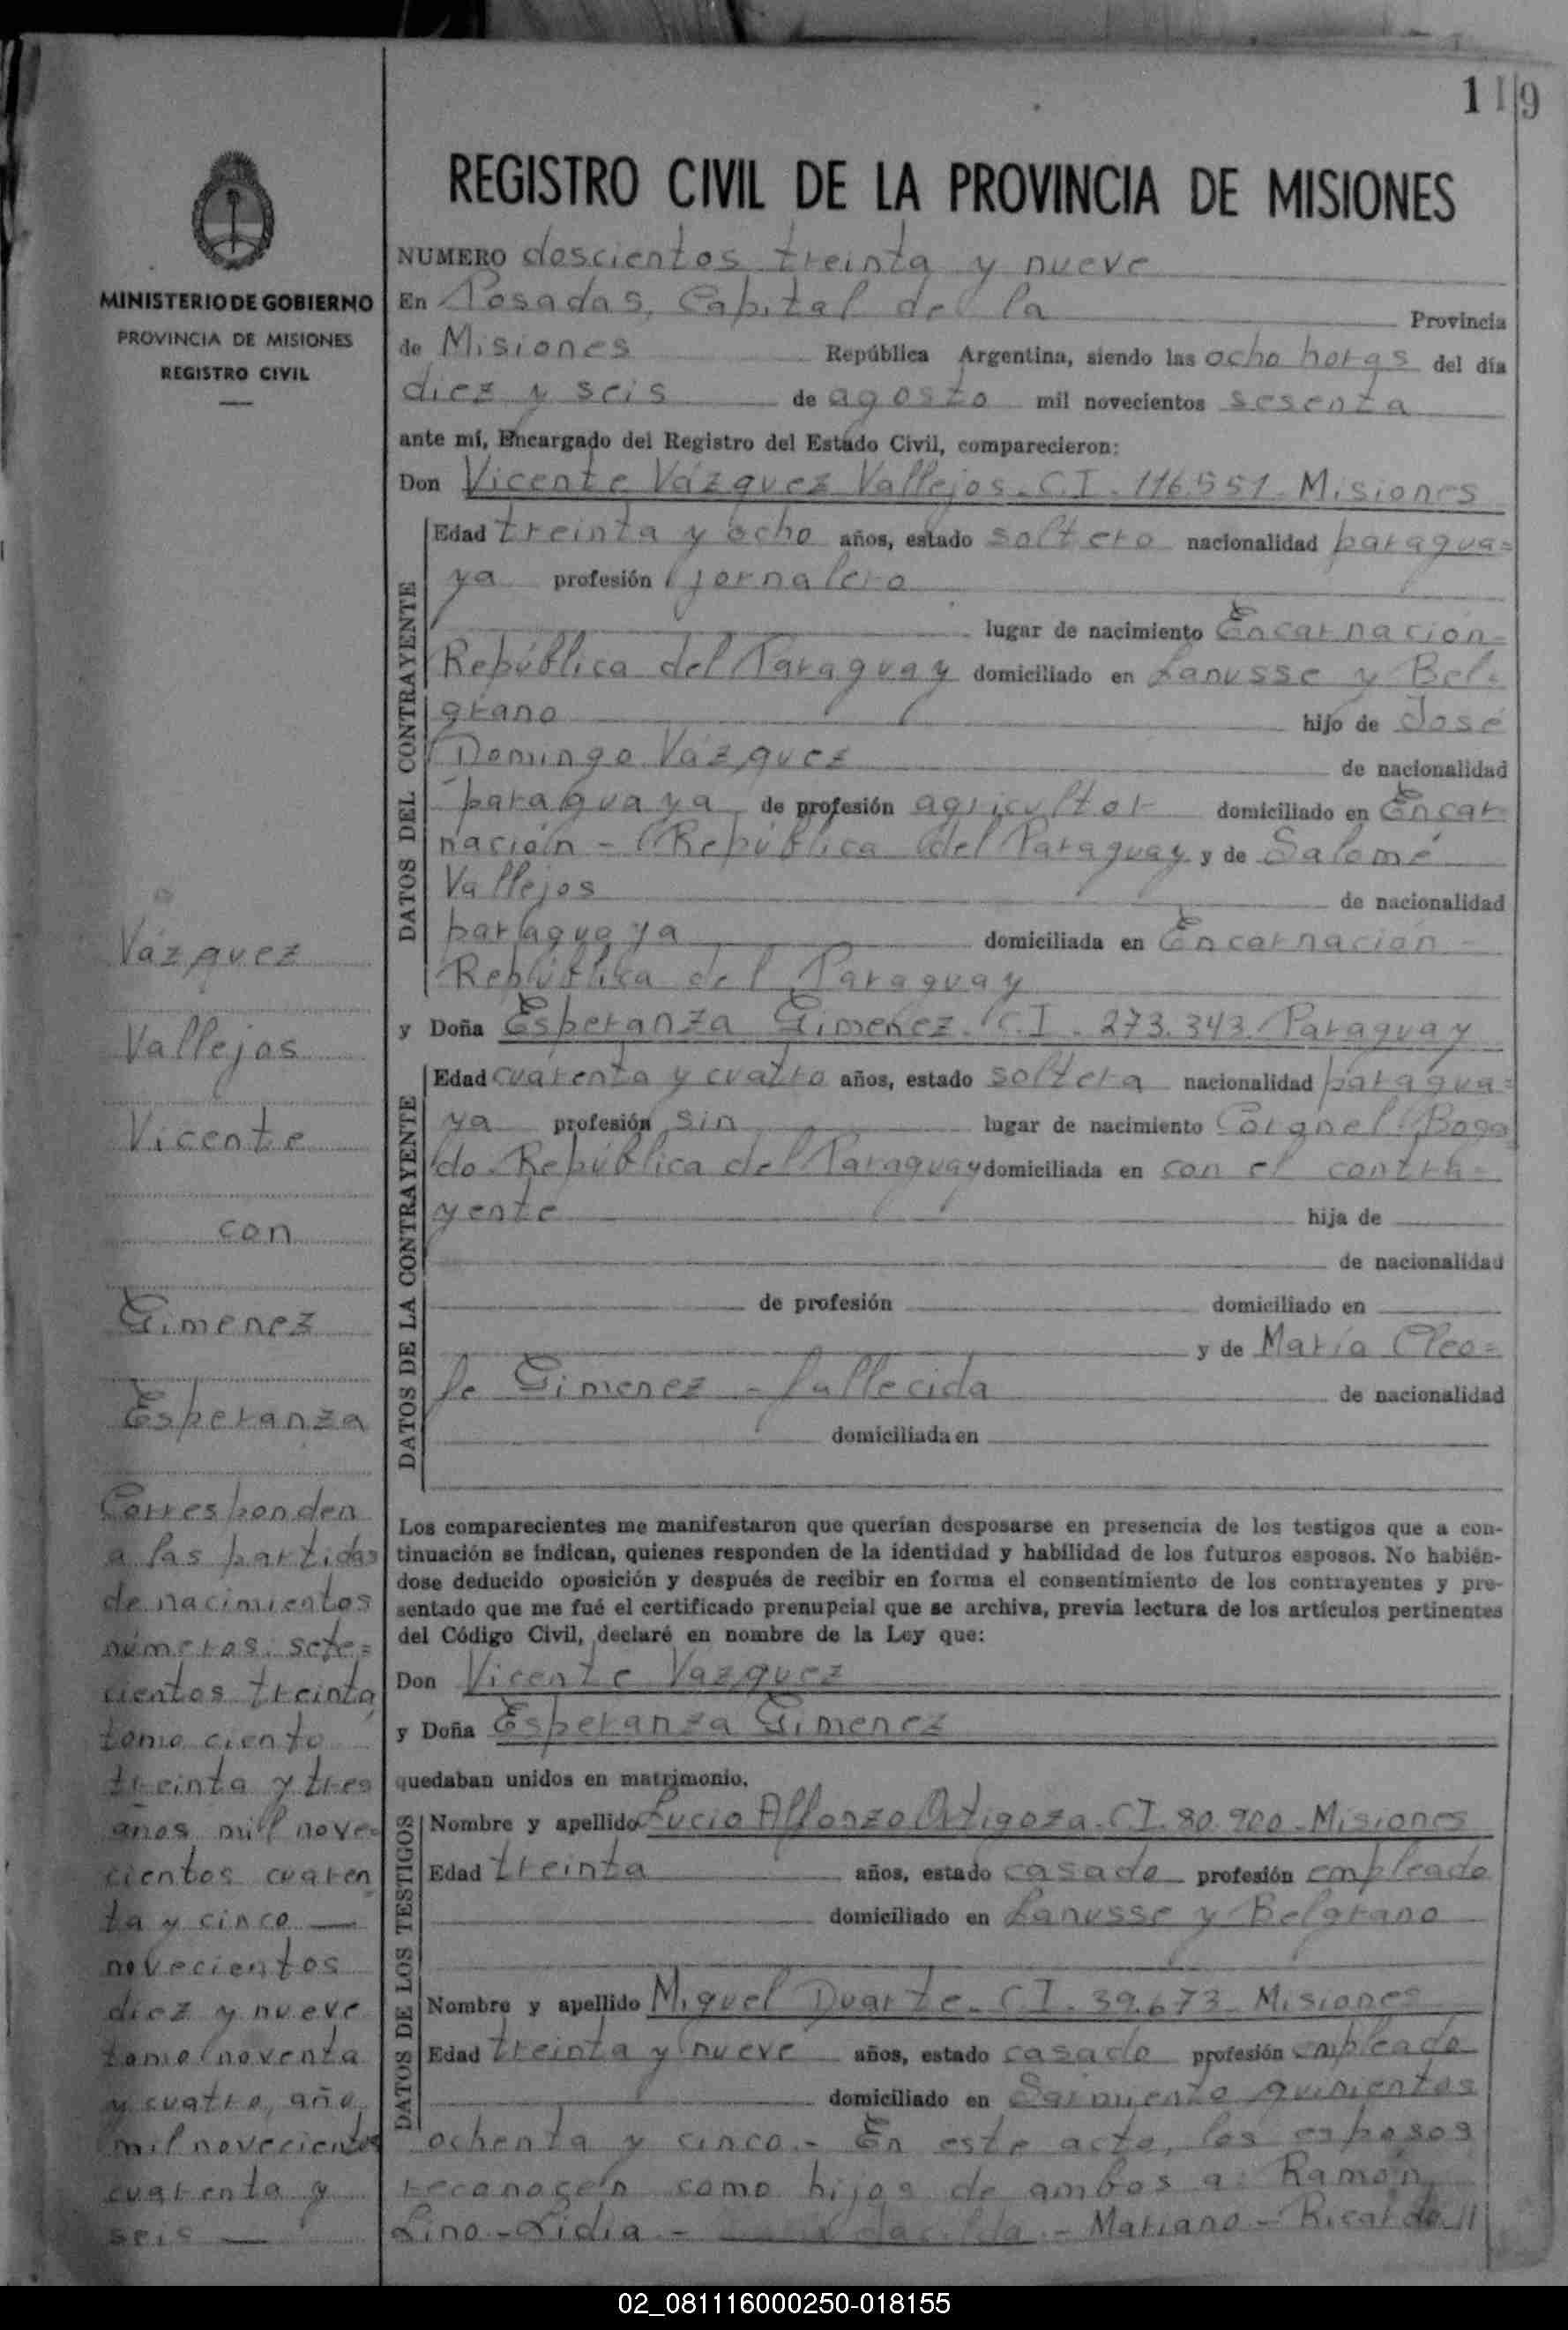 119
REGISTRO CIVIL DE LA PROVINCIA DE MISIONES
MINISTERIO DE GOBIERNO
PROVINCIA DE MISIONES
REGISTRO CIVIL
NUMERO doscientos treinta y nueve
En Posadas, Capital de la Provincia
de Misiones República Argentina, siendo las ocho horas del día
diez y seis de agosto mil novecientos sesenta
ante mí, Encargado del Registro del Estado Civil, comparecieron:
Don Vicente Vázquez Vallejos. C.I. 116.551 Misiones
DATOS DEL CONTRAYENTE
Edad treinta y ocho años, estado soltero nacionalidad paragua=
ya profesión jornalero
lugar de nacimiento Encarnación-
República del Paraguay domiciliado en Lanusse y Bel-
grano hijo de José
Domingo Vázquez de nacionalidad
paraguaya de profesión agricultor domiciliado en Encar
nación - República del Paraguay y de Salomé
Vallejos de nacionalidad
paraguaya domiciliada en Encarnación -
República del Paraguay
y Doña Esperanza Gimenez. C.I. 273.343. Paraguay
DATOS DE LA CONTRAYENTE
Edad cuarenta y cuatro años, estado soltera nacionalidad paragua=
ya profesión sin lugar de nacimiento Coronel Boga
do. República del Paraguay domiciliada en con el contra-
yente hija de
de nacionalidad
de profesión domiciliado en
y de María Cleo=
fe Gimenez - fallecida de nacionalidad
domiciliada en
Los comparecientes me manifestaron que querían desposarse en presencia de los testigos que a con-
tinuación se indican, quienes responden de la identidad y habilidad de los futuros esposos. No habién-
dose deducido oposición y después de recibir en forma el consentimiento de los contrayentes y pre-
sentado que me fué el certificado prenupcial que se archiva, previa lectura de los artículos pertinentes
del Código Civil, declaré en nombre de la Ley que:
Don Vicente Vazquez
y Doña Esperanza Gimenez
quedaban unidos en matrimonio.
DATOS DE LOS TESTIGOS
Nombre y apellido Lucio Alfonzo Ortigoza. C.I. 80.900 - Misiones
Edad treinta años, estado casado profesión empleado
domiciliado en Lanusse y Belgrano
Nombre y apellido Miguel Duarte. C.I. 39.673 Misiones
Edad treinta y nueve años, estado casado profesión empleado
domiciliado en Sarmiento quinientos
ochenta y cinco.- En este acto, los esposos
reconocen como hijos de ambos a: Ramón
Lino - Lidia - - Mariano - Ricardo //
Vázquez
Vallejos
Vicente
con
Gimenez
Esperanza
Corresponden
a las partidas
de nacimientos
números. sete=
cientos treinta
tomo ciento
treinta y tres
años mil nove=
cientos cuaren
ta y cinco —
novecientos
diez y nueve
tomo noventa
y cuatro, año
mil novecientos
cuarenta y
seis —
02_081116000250-018155